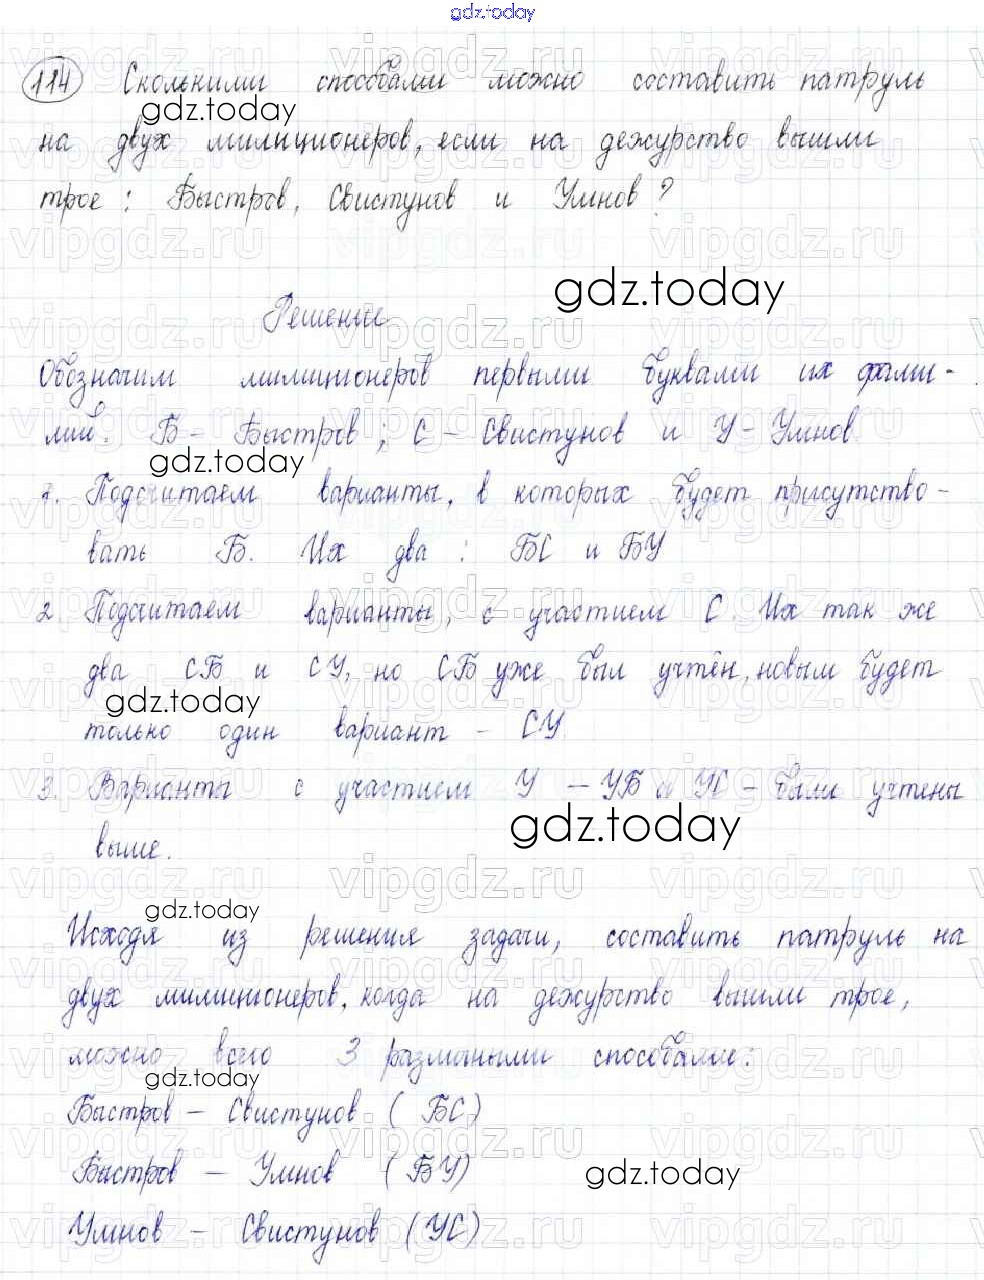 gdz.today
114 Сколькими способами можно составить патруль
gdz.today
на двух милиционеров, если на дежурство вышли
трое: Быстров, Свистунов и Умнов?
gdz.today
Решение
Обозначим милиционеров первыми буквами их фами-
лий. Б - Быстров; С - Свистунов и У - Умнов.
gdz.today
1. Подсчитаем варианты, в которых будет присутство-
вать Б. Их два: БС и БУ
2. Подсчитаем варианты, с участием С. Их так же
два СБ и СУ, но СБ уже был учтён, новым будет
gdz.today
только один вариант - СУ.
3. Варианты с участием У - УБ и УС - были учтены
gdz.today
выше.
gdz.today
Исходя из решения задачи, составить патруль на
двух милиционеров, когда на дежурство вышли трое,
можно всего 3 разными способами:
gdz.today
Быстров - Свистунов (БС)
Быстров - Умнов (БУ)
gdz.today
Умнов - Свистунов (УС)